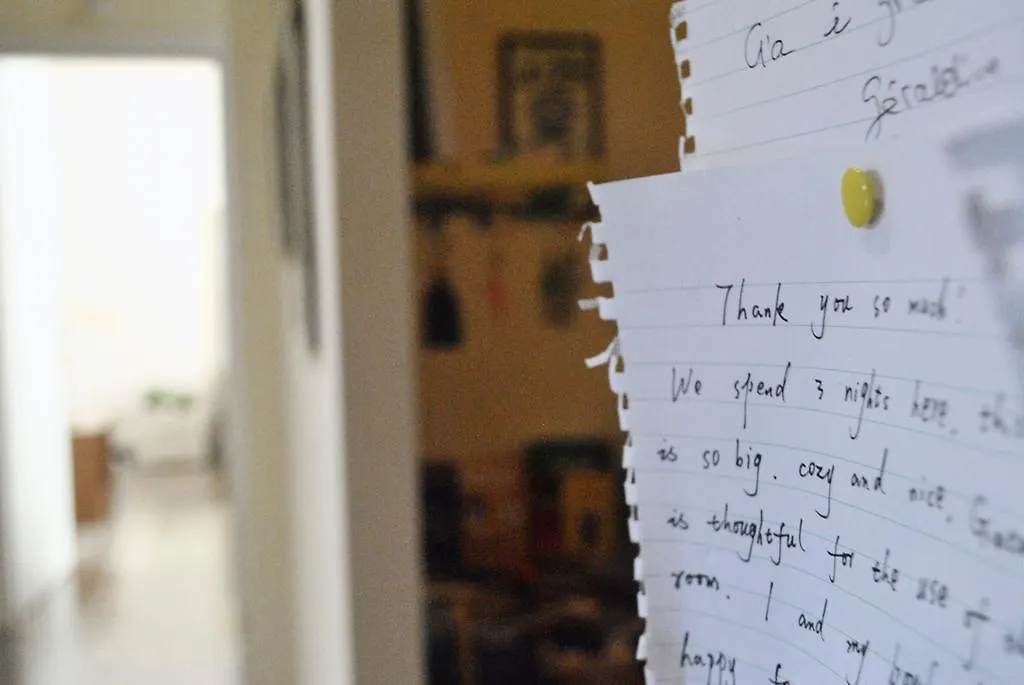 Gia è
Thank you so much!
We spend 3 nights here, this
is so big. cozy and nice.
is thoughtful for the use of
room. I and my
happy